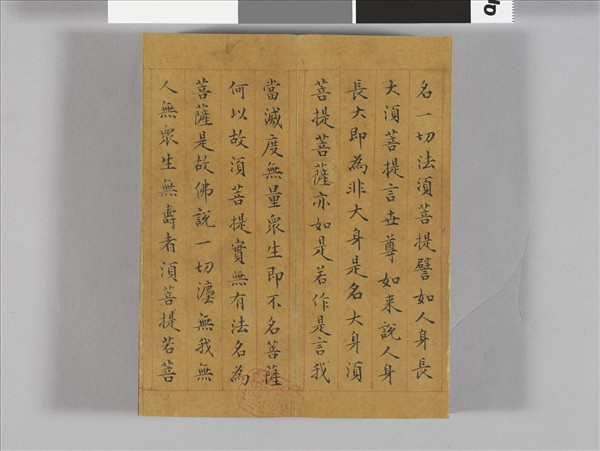 名一切法須菩提譬如人身長
大須菩提言世尊如来說人身
長大即為非大身是名大身須
菩提菩薩亦如是若作是言我
當滅度無量衆生即不名菩薩
何以故須菩提實無有法名為
菩薩是故佛說一切法無我無
人無衆生無壽者須菩提若菩